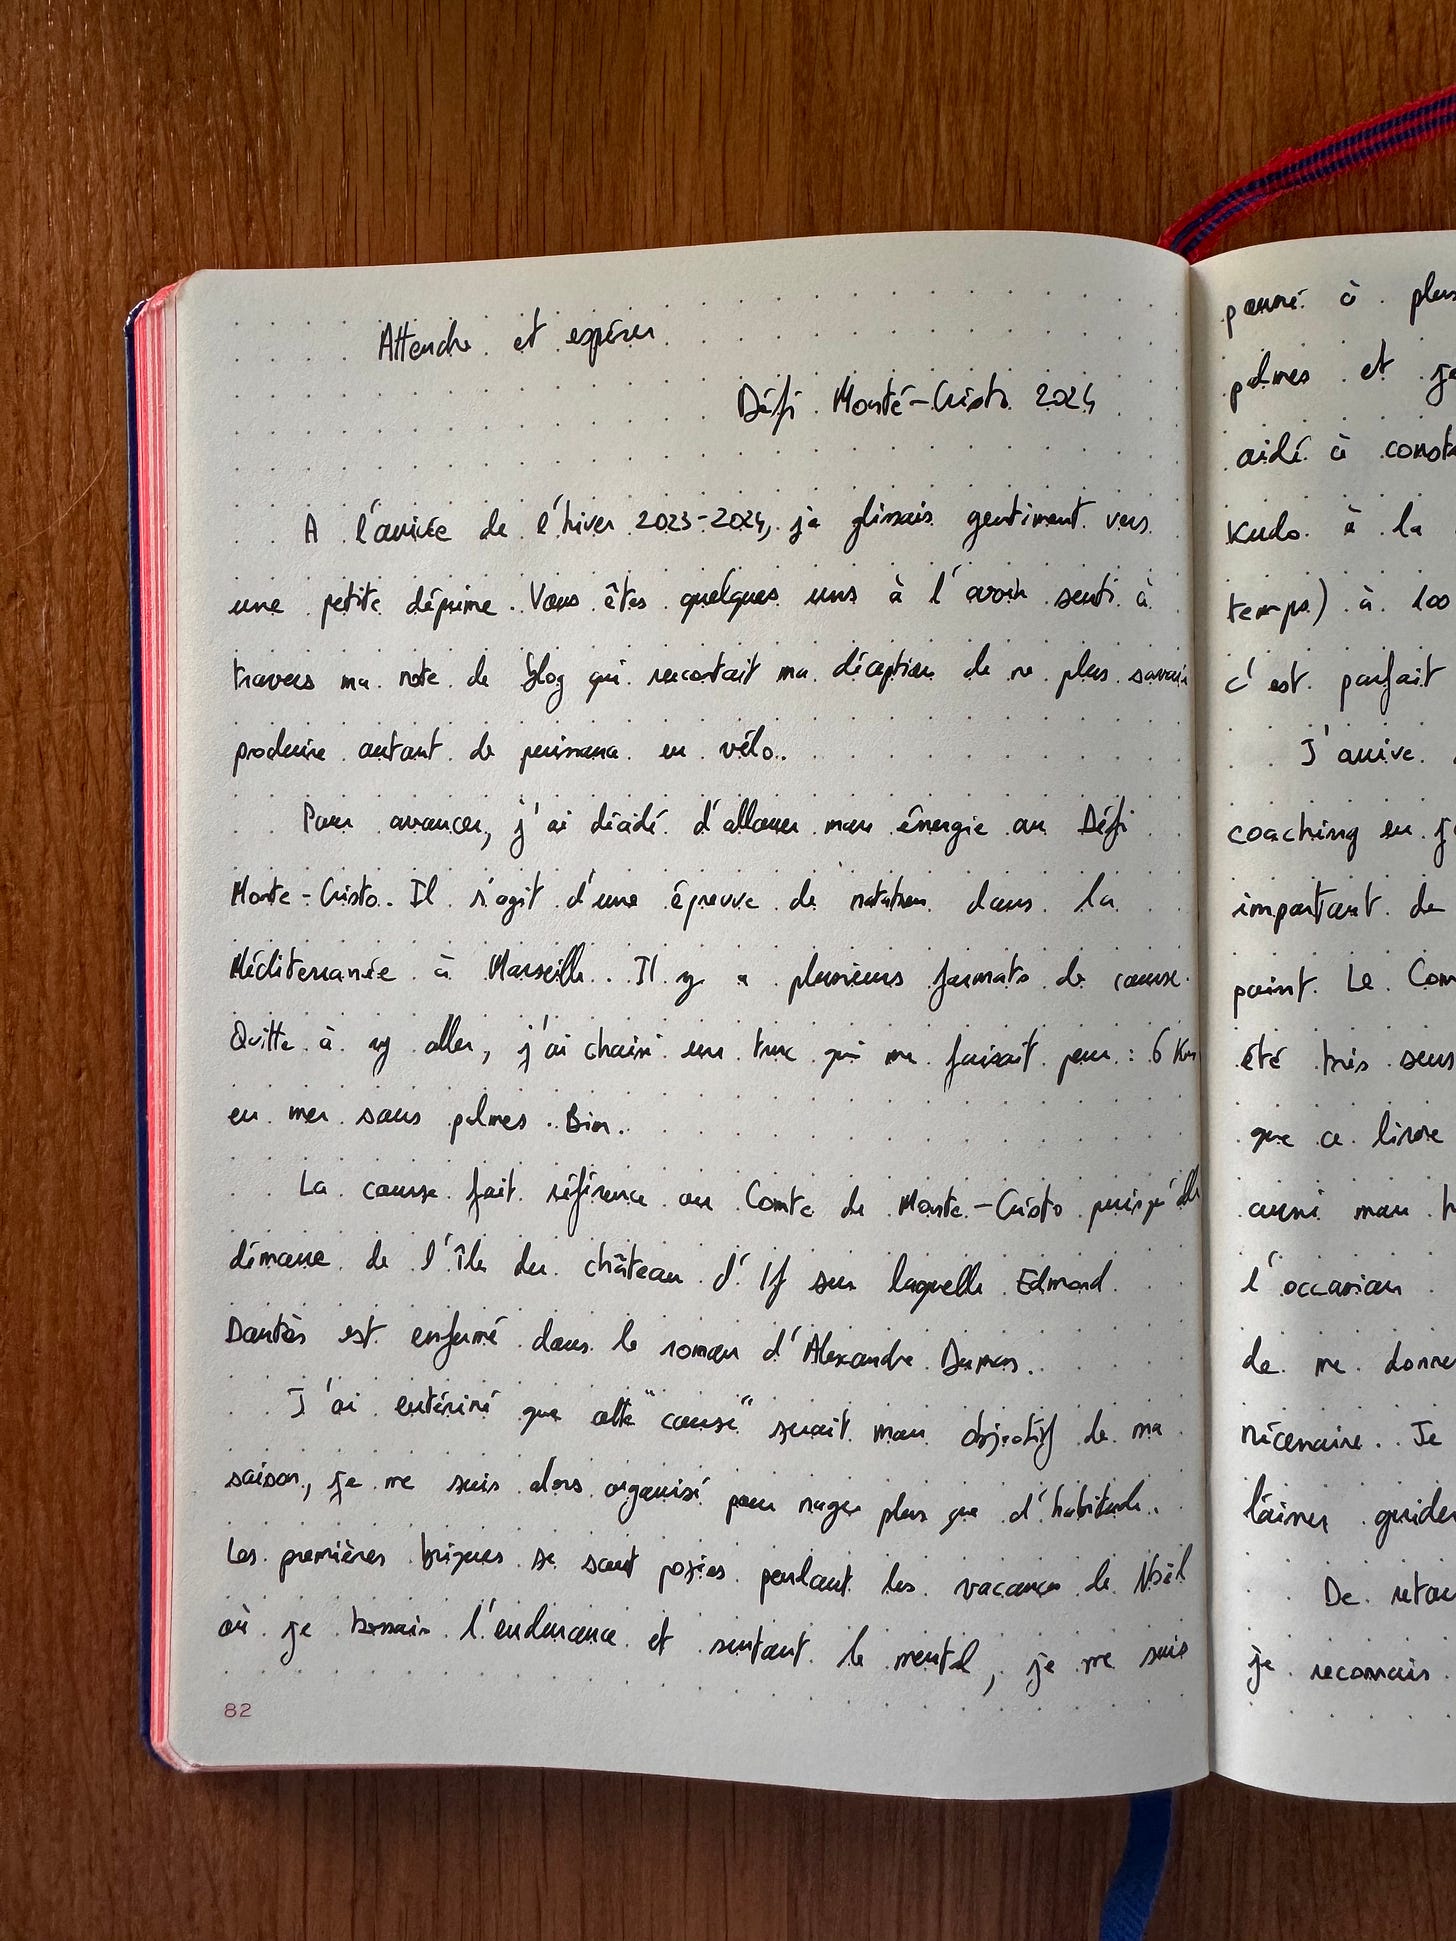 Attendre et espérer
Défi Monté-Cristo 2024
A l'arrivée de l'hiver 2023-2024, je glissais gentiment vers
une petite déprime. Vous êtes quelques uns à l'avoir senti à
travers ma note de blog qui racontait ma déception de ne plus savoir
produire autant de puissance en vélo.
Pour avancer, j'ai décidé d'allouer mon énergie au Défi
Monte-Cristo. Il s'agit d'une épreuve de natation dans la
Méditerranée à Marseille. Il y a plusieurs formats de course.
Quitte à y aller, j'ai choisi un truc qui me faisait peur : 6 Km
en mer sans palmes. Bim.
La course fait référence au Comte de Monte-Cristo puisqu'elle
démarre de l'île du château d'If sur laquelle Edmond
Dantès est enfermé dans le roman d'Alexandre Dumas.
J'ai entériné que cette "course" serait mon objectif de ma
saison, je me suis alors organisé pour nager plus que d'habitude.
Les premières briques se sont posées pendant les vacances de Noël
où je l'endurance et surtout le mental, je me suis
82
paumé à plus
palmes et je
aidé à
Kudo à la
temps) à 100
c'est parfait
J'arrive
coaching en
important de
point. Le Com
été très
que ce livre
aussi mon
l'occasion
de me
nécessaire. Je
laisser guider
De
je reconnais